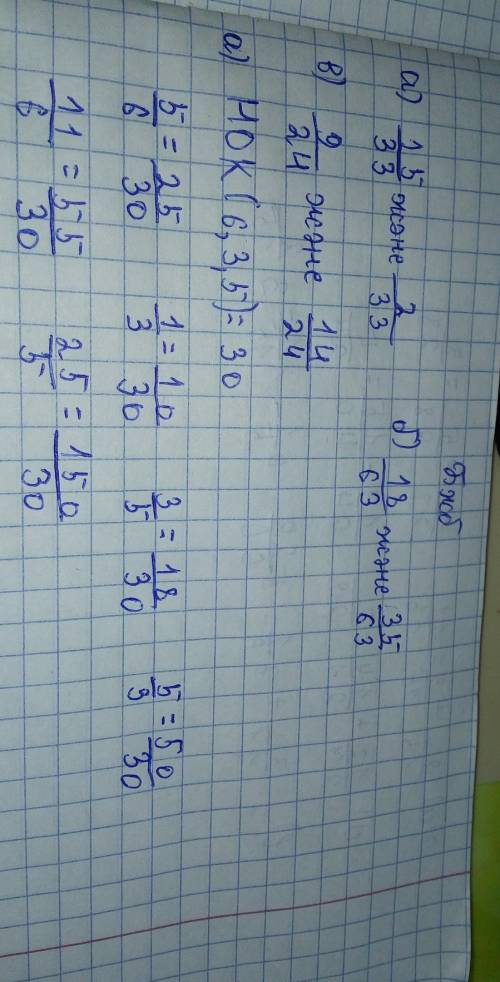 Бжб
а) 15/33 және 2/33 б) 18/63 және 35/63
в) 9/24 және 14/24
а) НОК(6,3,5)=30
5/6=25/30 1/3=10/30 3/5=18/30 5/3=50/30
11/6=55/30 25/5=150/30